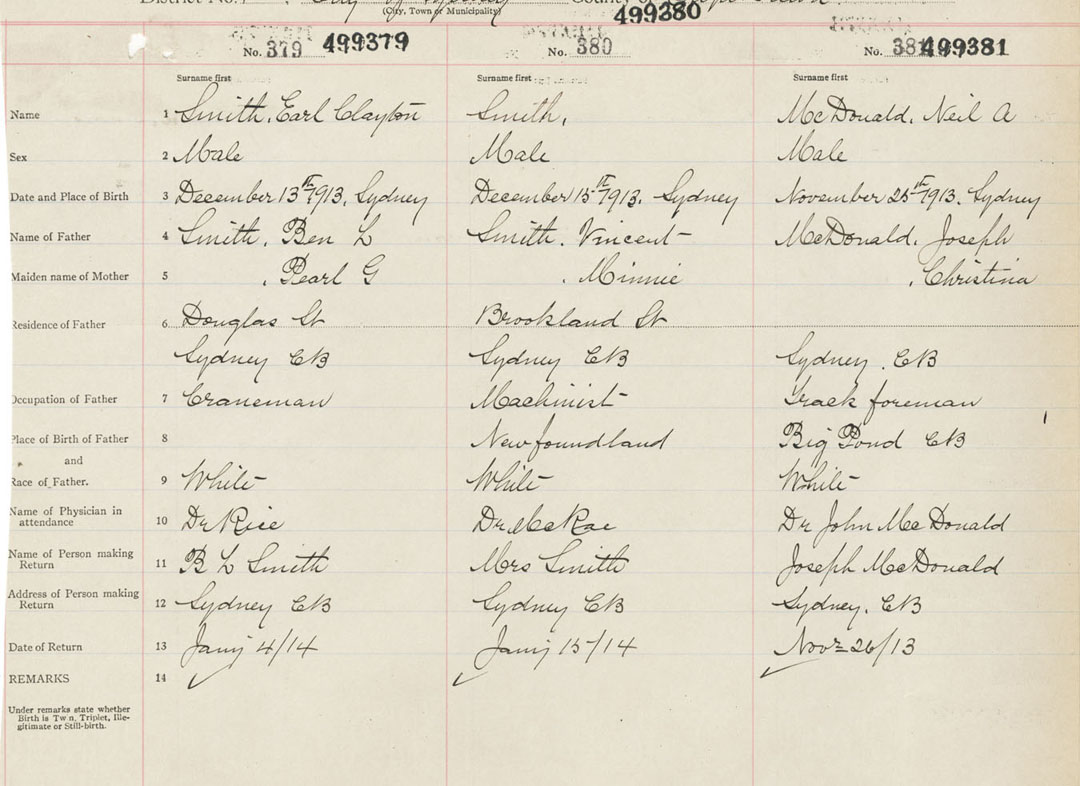 District No. City of Sydney County of
(City, Town or Municipality)
No. 379 499379 No. 380 499380 No. 381 499381
Surname first Surname first Surname first
Name 1 Smith, Earl Clayton Smith, McDonald, Neil A
Sex 2 Male Male Male
Date and Place of Birth 3 December 13th 1913, Sydney December 15th 1913, Sydney November 25th 1913, Sydney
Name of Father 4 Smith, Ben L Smith, Vincent McDonald, Joseph
Maiden name of Mother 5 , Pearl G , Minnie , Christina
Residence of Father 6 Douglas St Brookland St
Sydney CB Sydney CB Sydney, CB
Occupation of Father 7 Craneman Machinist Track foreman
Place of Birth of Father 8 Newfoundland Big Pond CB
and
Race of Father. 9 White White White
Name of Physician in
attendance 10 Dr Rice Dr McRae Dr John McDonald
Name of Person making
Return 11 B L Smith Mrs Smith Joseph McDonald
Address of Person making
Return 12 Sydney CB Sydney CB Sydney, CB
Date of Return 13 Jany 4/14 Jany 15/14 Novr 26/13
REMARKS 14
Under remarks state whether
Birth is Twin, Triplet, Ille-
gitimate or Still-birth.